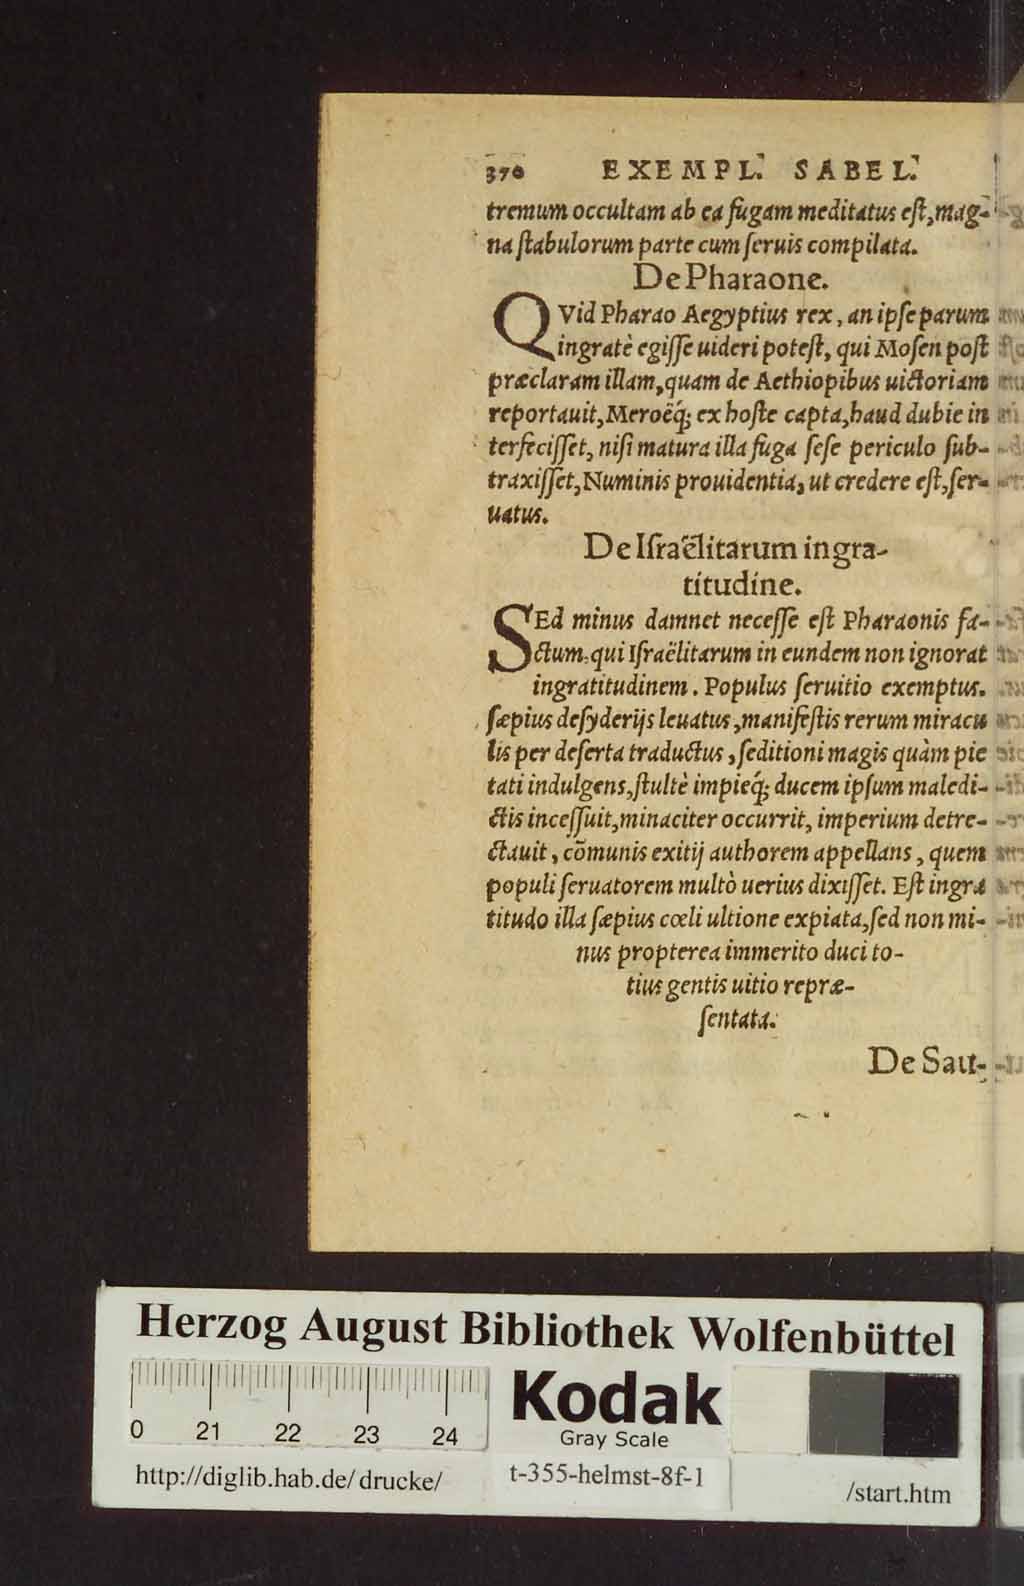 370 EXEMPL. SABEL.
tremum occultam ab ea fugam meditatus eſt, mag-
na ſtabulorum parte cum ſeruis compilata.
De Pharaone.
QVid Pharao Aegyptius rex, an ipſe parum
ingratè egiſſe uideri poteſt, qui Moſen poſt
præclaram illam, quam de Aethiopibus uictoriam
reportauit, Meroëq́; ex hoſte capta, haud dubie in
terfeciſſet, niſi matura illa fuga ſeſe periculo ſub-
traxiſſet, Numinis prouidentia, ut credere eſt, ſer-
uatus.
De Iſraëlitarum ingra-
titudine.
SEd minus damnet neceſſe eſt Pharaonis fa-
ctum, qui Iſraëlitarum in eundem non ignorat
ingratitudinem. Populus ſeruitio exemptus.
ſæpius deſyderijs leuatus, manifeſtis rerum miracu
lis per deſerta traductus, ſeditioni magis quàm pie
tati indulgens, ſtultè impieq́; ducem ipſum maledi-
ctis inceſſuit, minaciter occurrit, imperium detre-
ctauit, cõmunis exitij authorem appellans, quem
populi ſeruatorem multò uerius dixiſſet. Eſt ingra
titudo illa ſæpius cœli ultione expiata, ſed non mi-
nus propterea immerito duci to-
tius gentis uitio repræ-
ſentata.
De Sau-
Herzog August Bibliothek Wolfenbüttel
0 21 22 23 24
Kodak
Gray Scale
http://diglib.hab.de/drucke/
t-355-helmst-8f-1
/start.htm